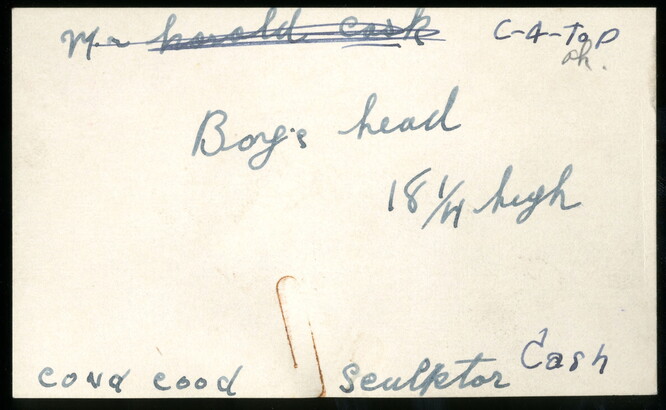 Mr harold cash C-4-Top
ok.
Boy's head
18 1/4 high
Cash
cond good sculptor